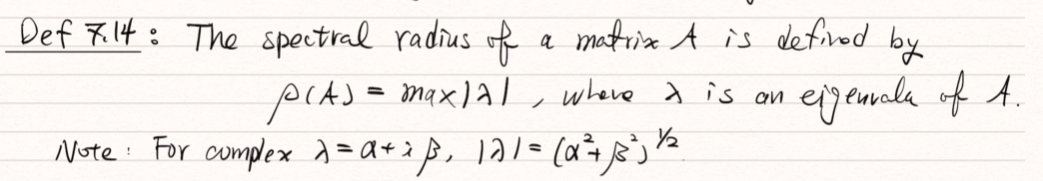 Def 7.14 : The spectral radius of a matrix A is defined by
ρ(A) = max|λ| , where λ is an eigenvale of A.
Note : For complex λ = α + i β, |λ| = (α² + β²)^½